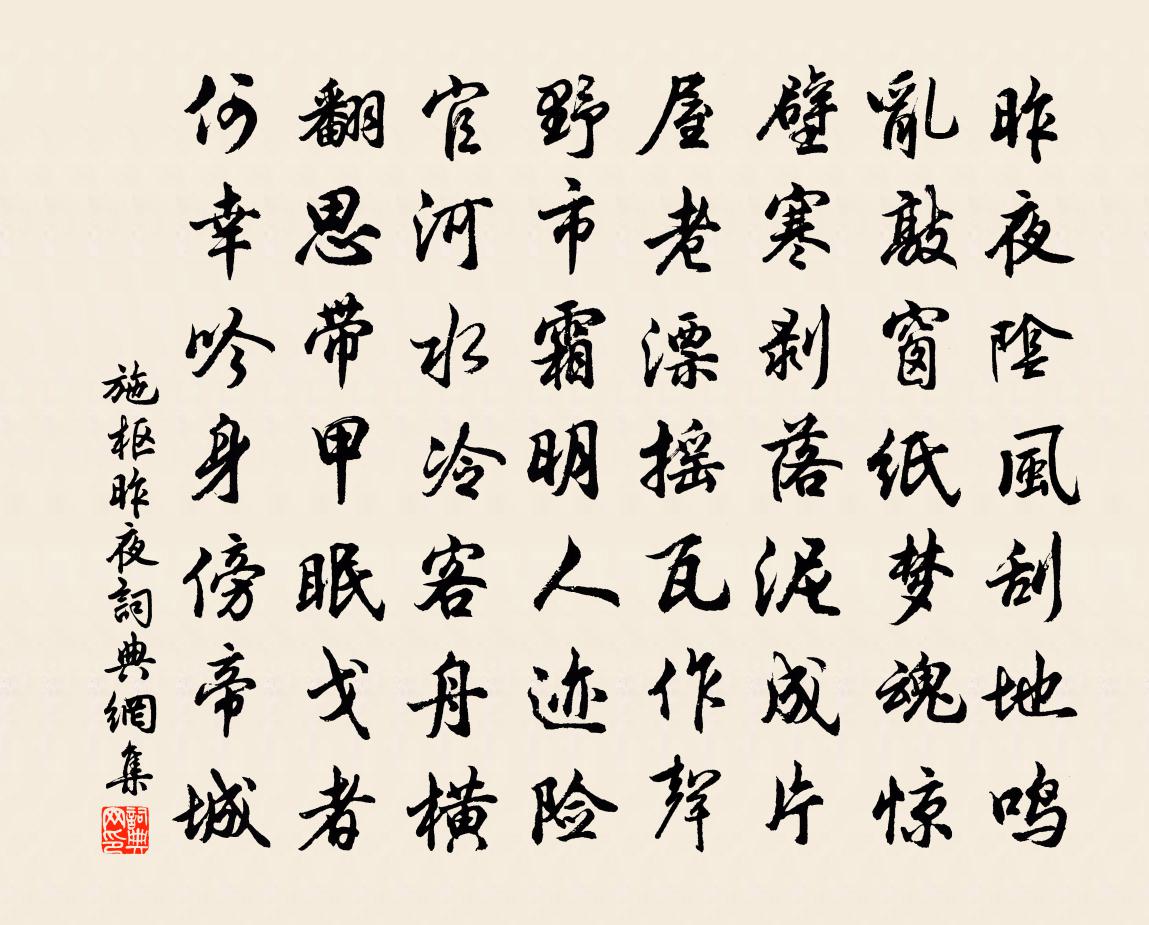 昨夜陰風刮地鸣
亂敲窗纸梦魂惊
壁寒剥落泥成片
屋老漂摇瓦作聲
野市霜明人迹险
官河水冷客舟橫
翻思带甲眠戈者
何幸吟身傍帝城
施枢昨夜詞典網集
詞典网印